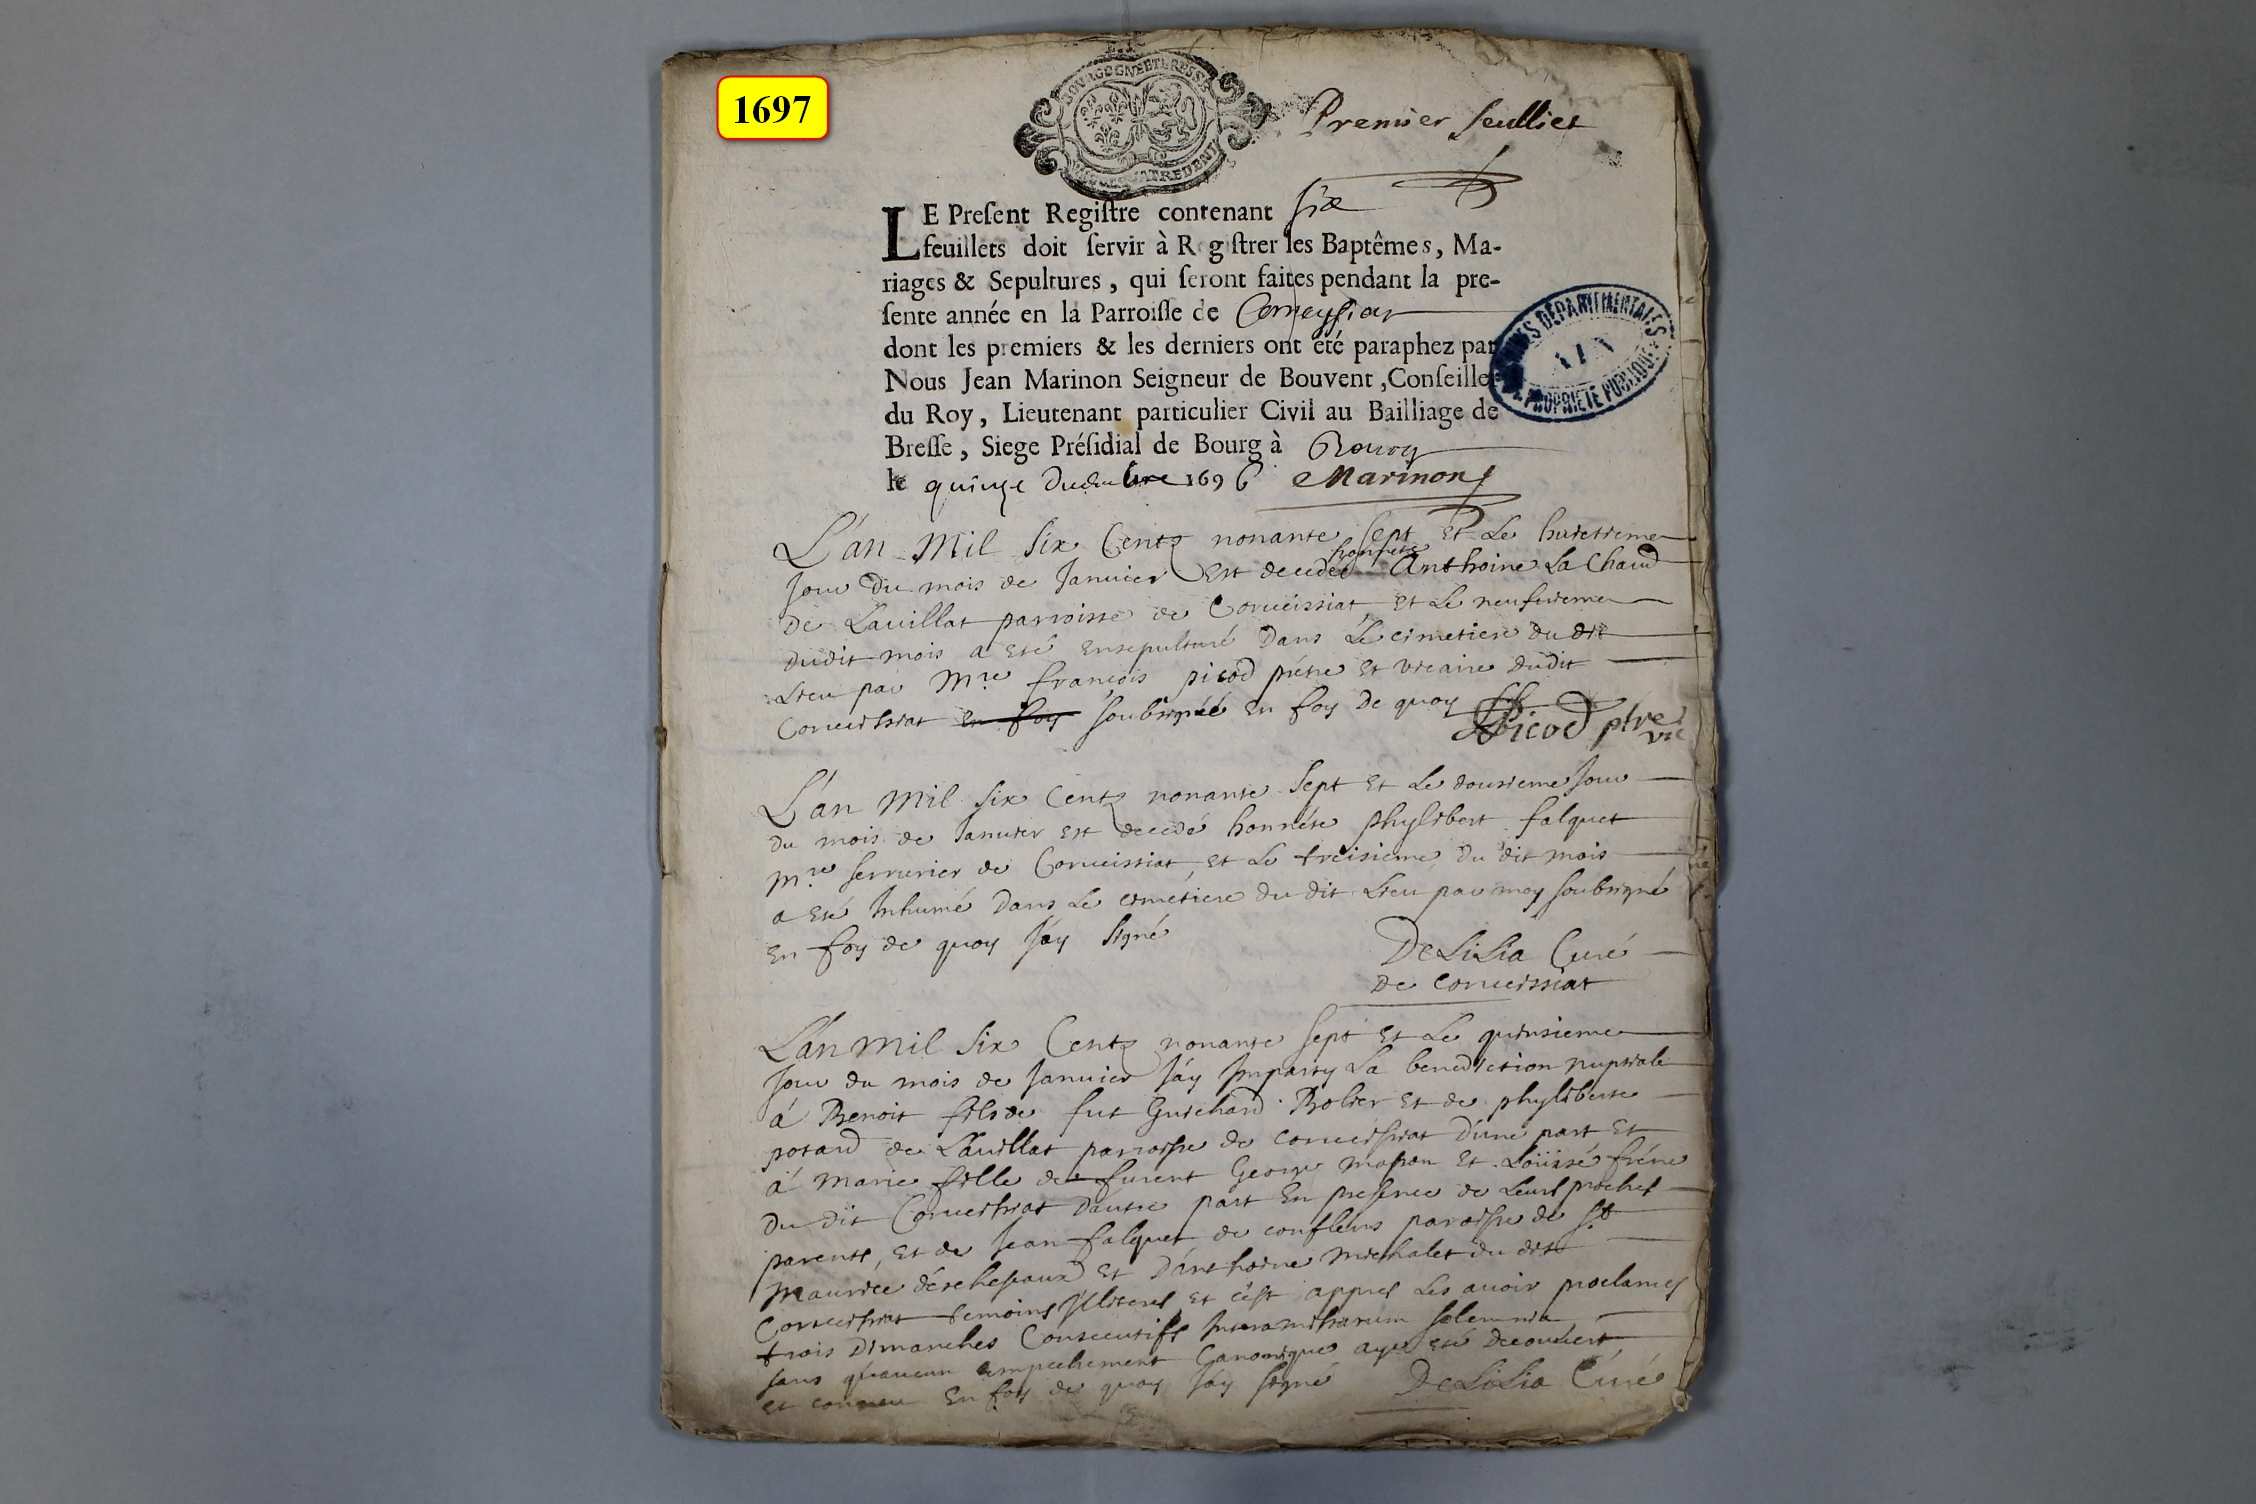 1697
BOVRGOGNE ET BRESSE
Premier feulliet
LE Preſent Regiſtre contenant six
feuillets doit ſervir à R giſtrer les Baptêmes, Ma-
riages & Sepultures, qui ſeront faites pendant la pre-
ſente année en la Parroiſſe de
dont les premiers & les derniers ont été paraphez par
Nous Jean Marinon Seigneur de Bouvent, Conſeiller
du Roy, Lieutenant particulier Civil au Bailliage de
Breſſe, Siege Préſidial de Bourg à Bourg
le quinze Decembre 1696 Marinon
L'an Mil Six Cents nonante sept et Le huictieme
Jour Du mois de Janvier est decedé honneste Anthoine La Chaud
De Lavillat parroisse de Corveissiat et Le neufvieme
dudit mois a esté ensepulturé Dans Le cimetiere du dit
Lieu par Mre françois picod prétre et vicaire dudit
Corveissiat en foy soubsigné en foy De quoy
Picod ptre
vic
L'an Mil Six Cents nonante Sept et Le dousieme Jour
du mois de Janvier est decedé honnéte phylibert falquet
Mre serrurier de Corveissiat, et Le treisieme Du dit mois
a esté Inhumé Dans Le cimétiere du dit Lieu par moy soubsigné
en foy de quoy J'ay Signé
DeLiLia Curé
de Corveissiat
L'an Mil Six Cents nonante sept et Le quinsieme
Jour du mois de Janvier J'ay Imparty La benediction nuptiale
á Benoit fils de fut Guichard Bolier et de phyliberte
potard de Lavillat parroisse de corveissiat D'une part et
á Marie fille de furent George maſson et Loüisé fréne
Du Dit Corveissiat D'autre part En presence de Leurs proches
parents, et de Jean falquet de conflens paroisse de St
Maurice déscheseaux et D'anthoine michalet du dit
Corveissiat temoins Jlliterés et c'est appres Les avoir proclamés
trois Dimanches Consecutifs Inter missarum solemnia
sans qu'aucun empechement Canonique aye esté decouvert
et conneu En foy de quoy J'ay signé DeLiLia Curé
ARCHIVES DÉPARTEMENTALES
AIN
PROPRIÉTÉ PUBLIQUE